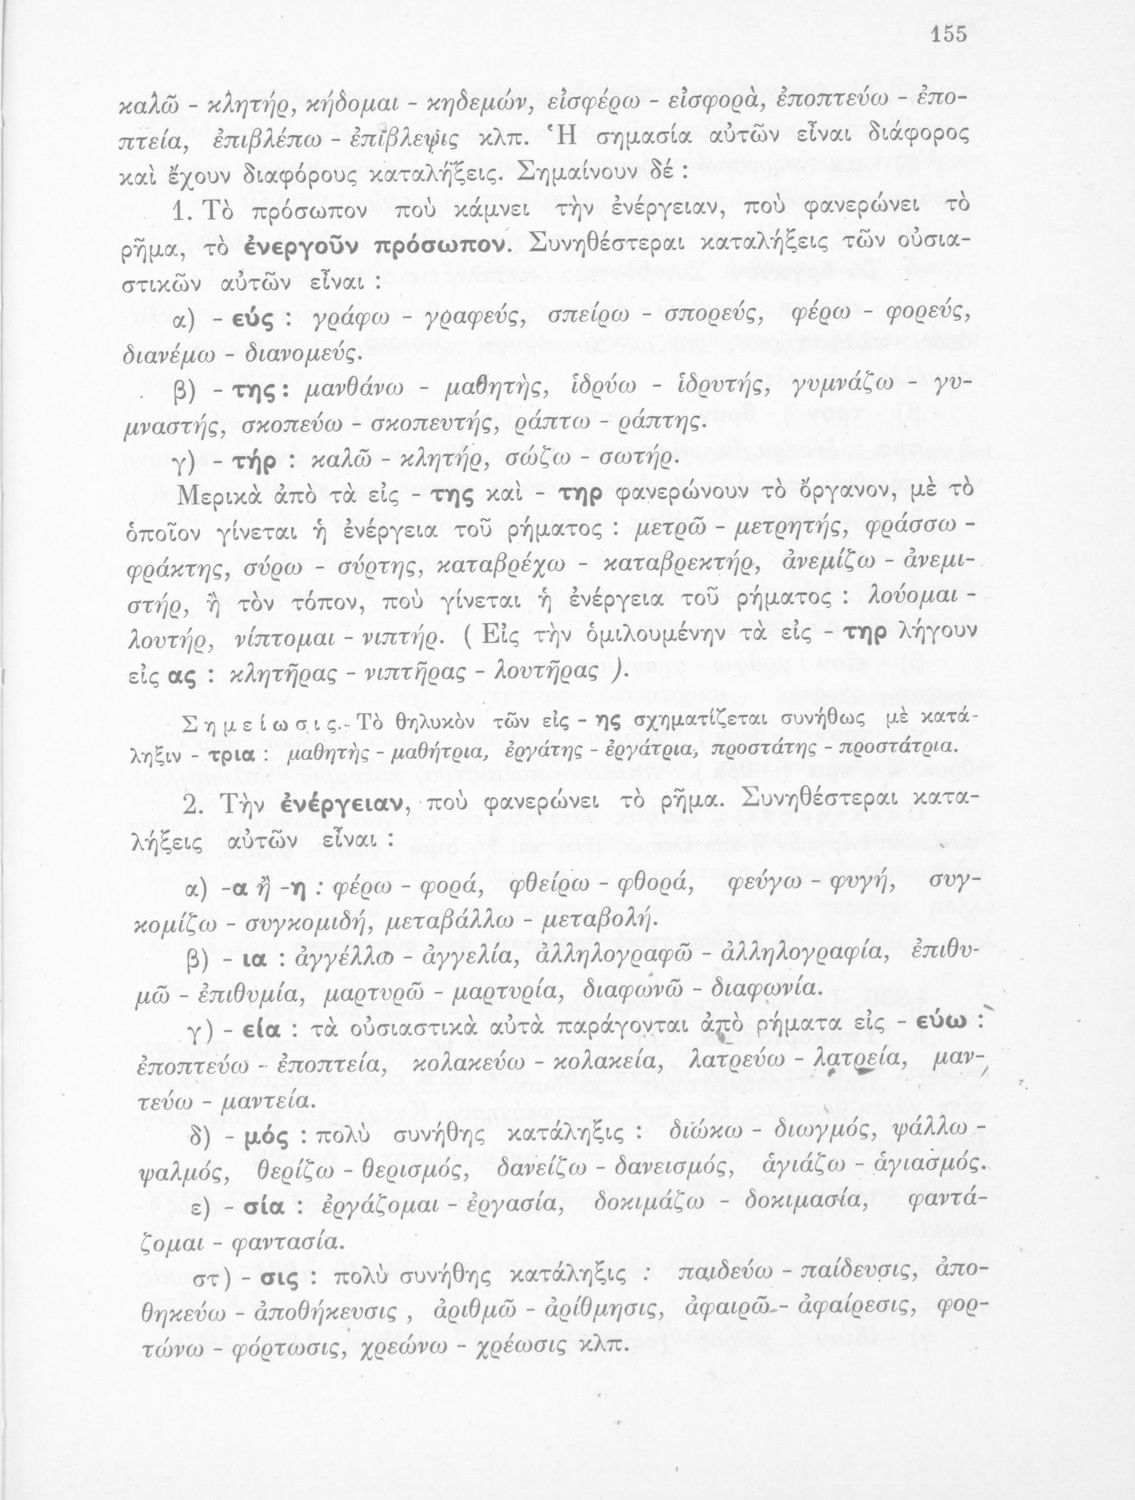 155
καλῶ - κλητήρ, κήδομαι - κηδεμών, εἰσφέρω - εἰσφορὰ, ἐποπτεύω - ἐπο-
πτεία, ἐπιβλέπω - ἐπίβλεψις κλπ. Ἡ σημασία αὐτῶν εἶναι διάφορος
καὶ ἔχουν διαφόρους καταλήξεις. Σημαίνουν δέ :
1. Τὸ πρόσωπον ποὺ κάμνει τὴν ἐνέργειαν, ποὺ φανερώνει τὸ
ρῆμα, τὸ ἐνεργοῦν πρόσωπον. Συνηθέστεραι καταλήξεις τῶν οὐσια-
στικῶν αὐτῶν εἶναι :
α) - εύς : γράφω - γραφεύς, σπείρω - σπορεύς, φέρω - φορεύς,
διανέμω - διανομεύς.
β) - της : μανθάνω - μαθητὴς, ἱδρύω - ἱδρυτής, γυμνάζω - γυ-
μναστής, σκοπεύω - σκοπευτής, ράπτω - ράπτης.
γ) - τήρ : καλῶ - κλητήρ, σώζω - σωτήρ.
Μερικὰ ἀπὸ τὰ εἰς - της καὶ - τηρ φανερώνουν τὸ ὄργανον, μὲ τὸ
ὁποῖον γίνεται ἡ ἐνέργεια τοῦ ρήματος : μετρῶ - μετρητής, φράσσω -
φράκτης, σύρω - σύρτης, καταβρέχω - καταβρεκτήρ, ἀνεμίζω - ἀνεμι-
στήρ, ἢ τὸν τόπον, ποὺ γίνεται ἡ ἐνέργεια τοῦ ρήματος : λούομαι -
λουτήρ, νίπτομαι - νιπτήρ. ( Εἰς τὴν ὁμιλουμένην τὰ εἰς - τηρ λήγουν
εἰς ας : κλητῆρας - νιπτῆρας - λουτῆρας ).
Σημείωσις.- Τὸ θηλυκὸν τῶν εἰς - ης σχηματίζεται συνήθως μὲ κατά-
ληξιν - τρια : μαθητὴς - μαθήτρια, ἐργάτης - ἐργάτρια, προστάτης - προστάτρια.
2. Τὴν ἐνέργειαν, ποὺ φανερώνει τὸ ρῆμα. Συνηθέστεραι κατα-
λήξεις αὐτῶν εἶναι :
α) -α ἢ -η : φέρω - φορά, φθείρω - φθορά, φεύγω - φυγή, συγ-
κομίζω - συγκομιδή, μεταβάλλω - μεταβολή.
β) - ια : ἀγγέλλω - ἀγγελία, ἀλληλογραφῶ - ἀλληλογραφία, ἐπιθυ-
μῶ - ἐπιθυμία, μαρτυρῶ - μαρτυρία, διαφωνῶ - διαφωνία.
γ) - εία : τὰ οὐσιαστικὰ αὐτὰ παράγονται ἀπὸ ρήματα εἰς - εύω :
ἐποπτεύω - ἐποπτεία, κολακεύω - κολακεία, λατρεύω - λατρεία, μαν-
τεύω - μαντεία.
δ) - μός : πολὺ συνήθης κατάληξις : διώκω - διωγμός, ψάλλω -
ψαλμός, θερίζω - θερισμός, δανείζω - δανεισμός, ἁγιάζω - ἁγιασμός.
ε) - σία : ἐργάζομαι - ἐργασία, δοκιμάζω - δοκιμασία, φαντά-
ζομαι - φαντασία.
στ) - σις : πολὺ συνήθης κατάληξις : παιδεύω - παίδευσις, ἀπο-
θηκεύω - ἀποθήκευσις , ἀριθμῶ - ἀρίθμησις, ἀφαιρῶ - ἀφαίρεσις, φορ-
τώνω - φόρτωσις, χρεώνω - χρέωσις κλπ.